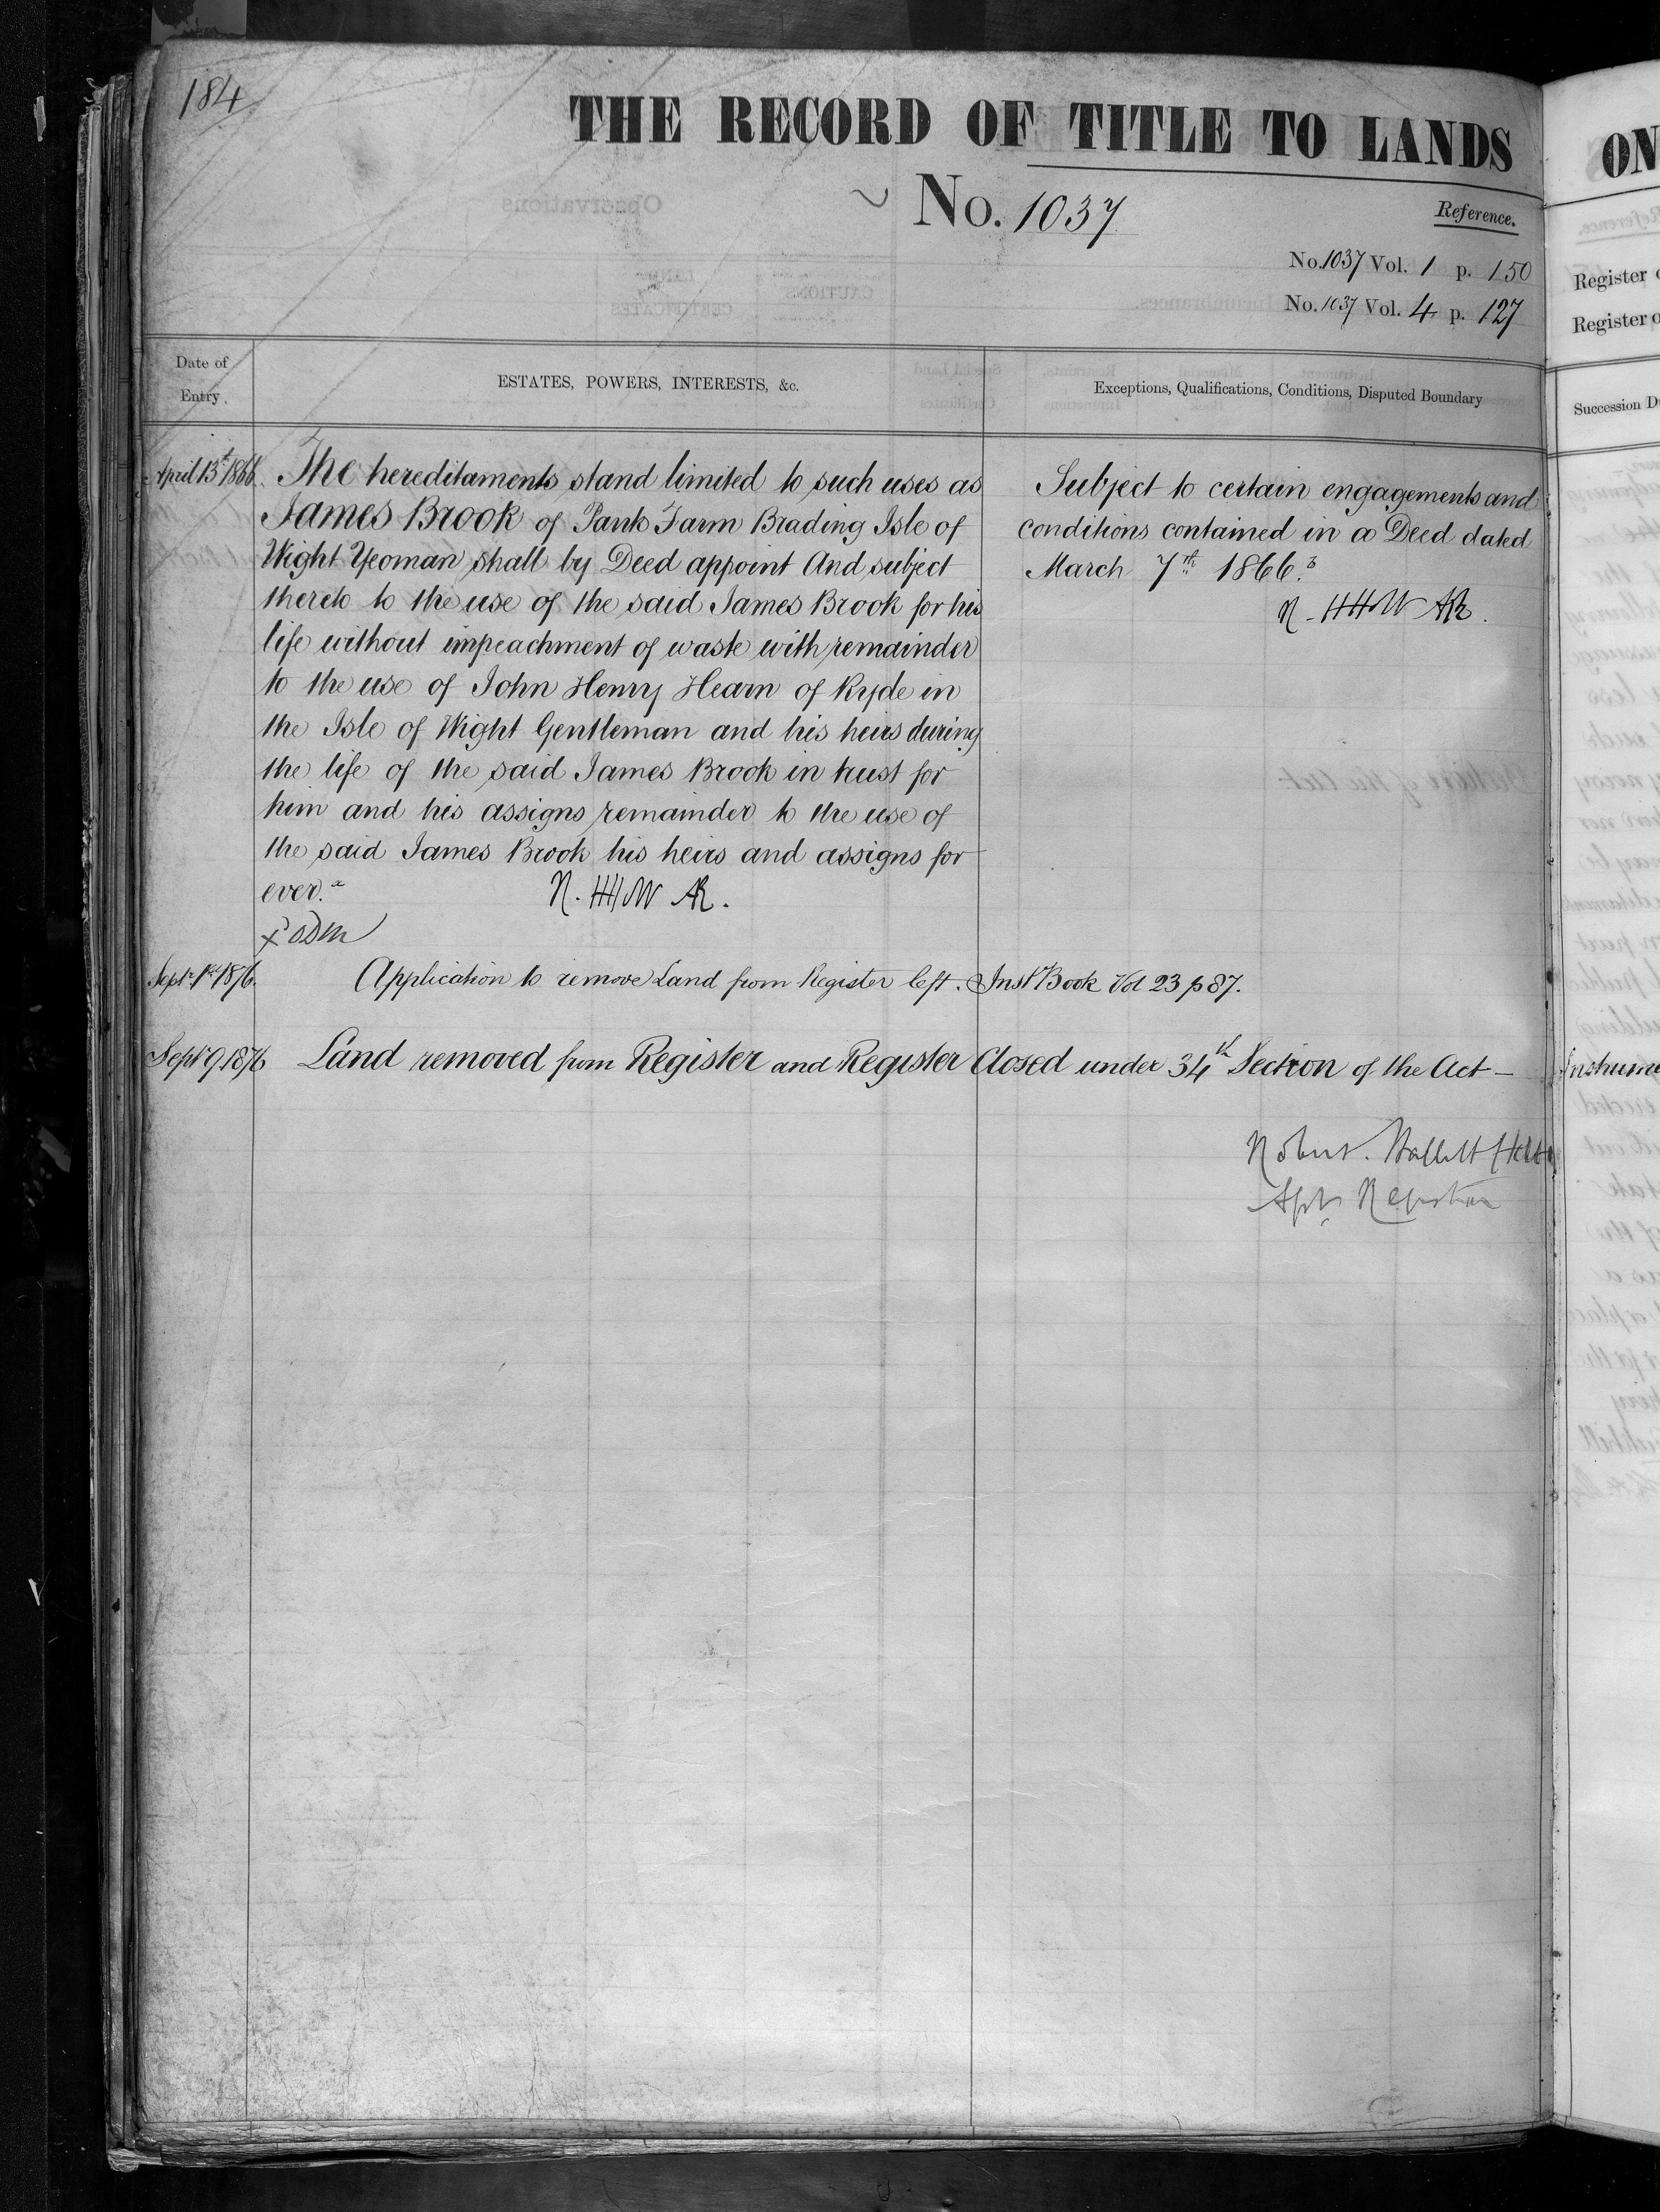 184
THE RECORD OF TITLE TO LANDS
No. 1037
Reference.
No. 1037 Vol. 1 p. 150
No. 1037 Vol. 4 p. 127
Date of
Entry.
ESTATES, POWERS, INTERESTS, &c.
Exceptions, Qualifications, Conditions, Disputed Boundary
April 13th 1866.
The hereditaments stand limited to such uses as
James Brook of Park Farm Brading Isle of
Wight Yeoman shall by Deed appoint And subject
thereto to the use of the said James Brook for his
life without impeachment of waste with remainder
to the use of John Henry Hearn of Ryde in
the Isle of Wight Gentleman and his heirs during
the life of the said James Brook in trust for
him and his assigns remainder to the use of
the said James Brook his heirs and assigns for
ever.
Subject to certain engagements and
conditions contained in a Deed dated
March 7th 1866.
Septr 1st 1876.
Application to remove Land from Register left. Inst Book Vol 23 p 87.
Septr 9. 1876
Land removed from Register and Register Closed under 34th Section of the Act —
Robert Hallett Holt
Asst Registrar
ON
Register
Register o
Succession D
Instrume